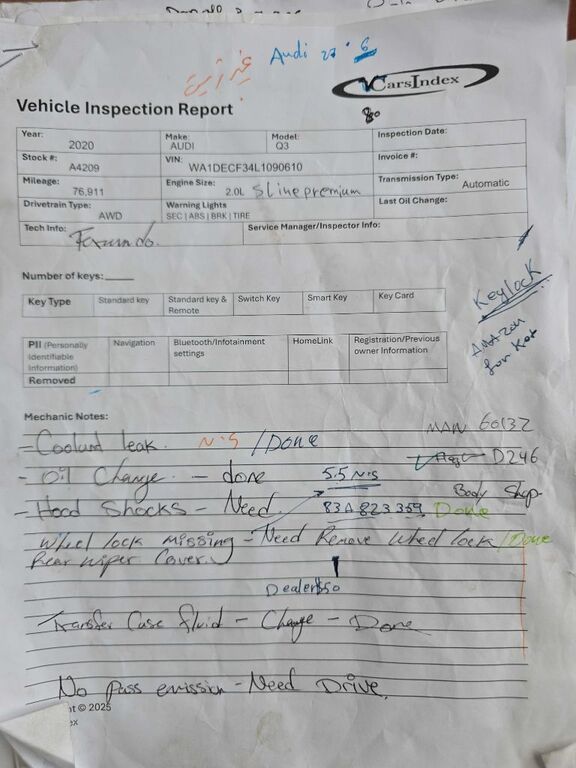 Audi
CarsIndex
Vehicle Inspection Report
80
Year: 2020 Make: AUDI Model: Q3 Inspection Date:
Stock #: A4209 VIN: WA1DECF34L1090610 Invoice #:
Mileage: 76,911 Engine Size: 2.0L Sline premium Transmission Type: Automatic
Drivetrain Type: AWD Warning Lights SEC | ABS | BRK | TIRE Last Oil Change:
Tech Info: Service Manager/Inspector Info:
Number of keys:
Keylock
Amazon
for Key Type Standard key Standard key & Remote Switch Key Smart Key Key Card
PII (Personally Identifiable Information) Removed Navigation Bluetooth/Infotainment settings HomeLink Registration/Previous owner Information
Mechanic Notes:
MAN 60132
- Coolant leak. N.S /Done
D246
- Oil Change. - done 5.5 N.S
Body Shop
- Hood Shocks - Need. 83A 823 359 Done
Wheel lock missing - Need Remove Wheel lock /Done
Rear wiper Cover.
Dealer $50
Transfer Case fluid - Change - Done
No Pass emission - Need Drive.
ht © 2025
ex